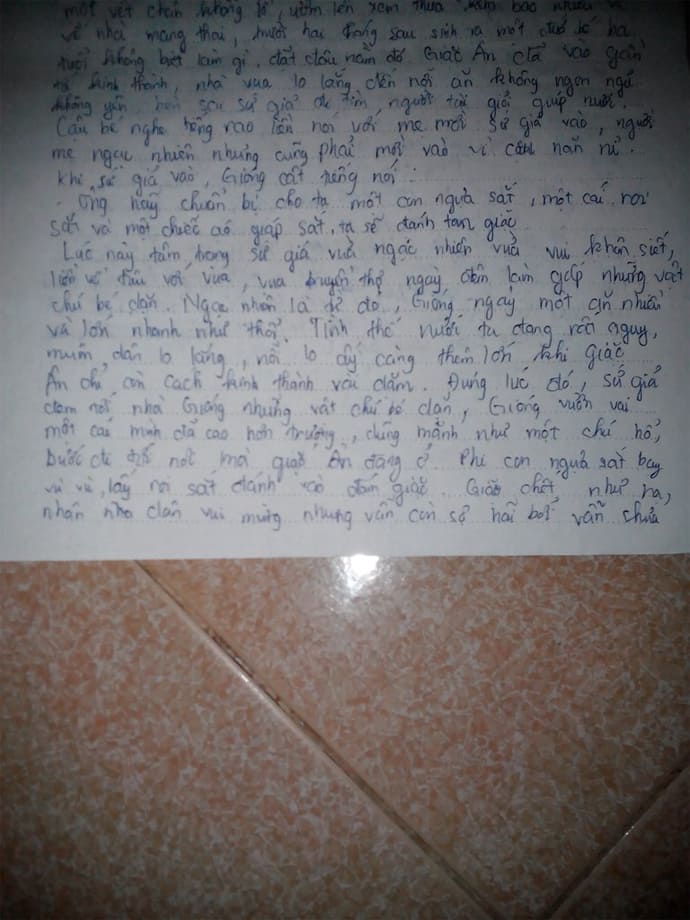 một vết chân khổng lồ, ướm lên xem thua bao nhiêu
về nhà mang thai, mười hai tháng sau sinh ra một bé ba
tuổi không biết làm gì, đặt đâu nằm đó Giặc Ân đã vào gần
kinh thành, nhà vua lo lắng đến nỗi ăn không ngon ngủ
không yên sứ giả đi tìm người tài giỏi giúp nước.
Cậu bé nghe tiếng rao liền nói với mẹ mời sứ giả vào, người
mẹ ngạc nhiên nhưng cũng phải mời vào vì cậu nằn nì.
khi sứ giả vào, Gióng cất tiếng nói:
- Ông hãy chuẩn bị cho ta một con ngựa sắt, một cái roi
sắt và một chiếc áo giáp sắt, ta sẽ đánh tan giặc
Lúc này tâm trạng sứ giả vừa ngạc nhiên vừa vui khôn siết,
liền về tâu với vua, vua truyền thợ ngày đêm làm gấp những vật
chú bé dặn. Ngạc nhiên là từ đó, Gióng ngày một ăn nhiều
và lớn nhanh như thổi. Tình thế nước ta đang rất nguy,
muôn dân lo lắng, nỗi lo ấy càng thêm lớn khi giặc
Ân chỉ còn cách kinh thành vài dặm. Đúng lúc đó, sứ giả
đem tới nhà Gióng những vật chú bé dặn, Gióng vươn vai
một cái mình đã cao hơn trượng, dũng mãnh như một chú hổ,
bước đi tới nơi mà giặc Ân đang ở. Phi con ngựa sắt bay
vù vù, lấy roi sắt đánh vào đám giặc. Giặc chết như rạ,
nhân dân vui mừng nhưng vẫn còn sợ hãi bởi vẫn chưa